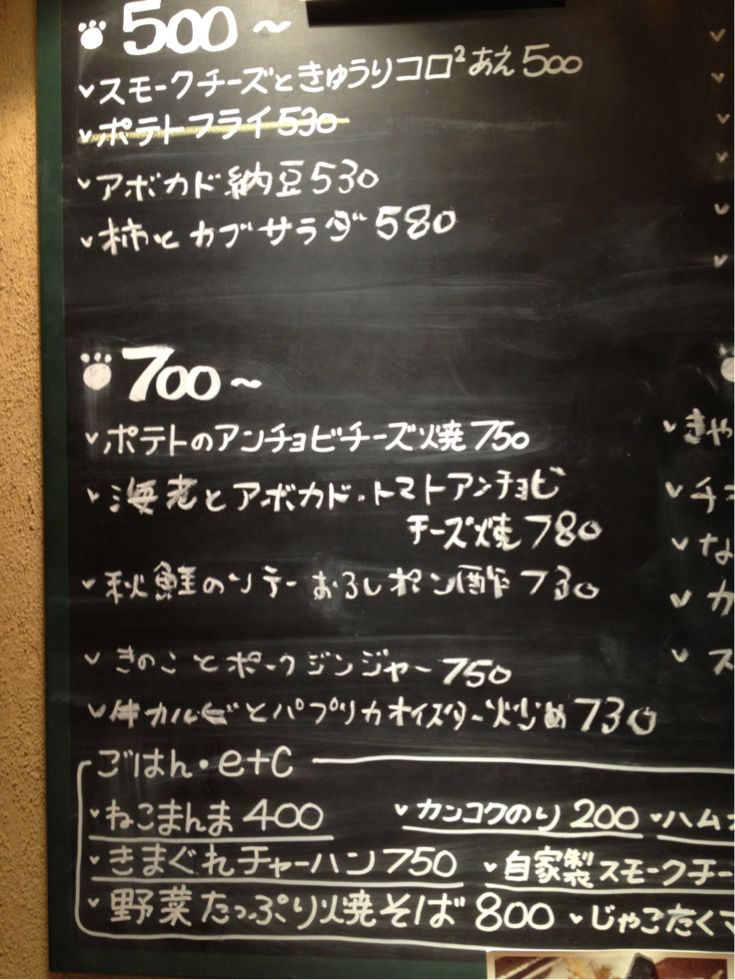 500～
スモークチーズときゅうりコロ²あえ 500
ポテトフライ 530
アボカド納豆 530
柿とカブサラダ 580
700～
ポテトのアンチョビチーズ焼 750
海老とアボカド・トマトアンチョビ
チーズ焼 780
秋鮭のソテーおろしポン酢 730
きのことポークジンジャー 750
牛カルビとパプリカオイスター炒め 730
きゃ
チ
な
カ
ス
ごはん・etc
ねこまんま 400 カンコクのり 200 ハム
きまぐれチャーハン 750 自家製スモークチー
野菜たっぷり焼そば 800 じゃこたくマ